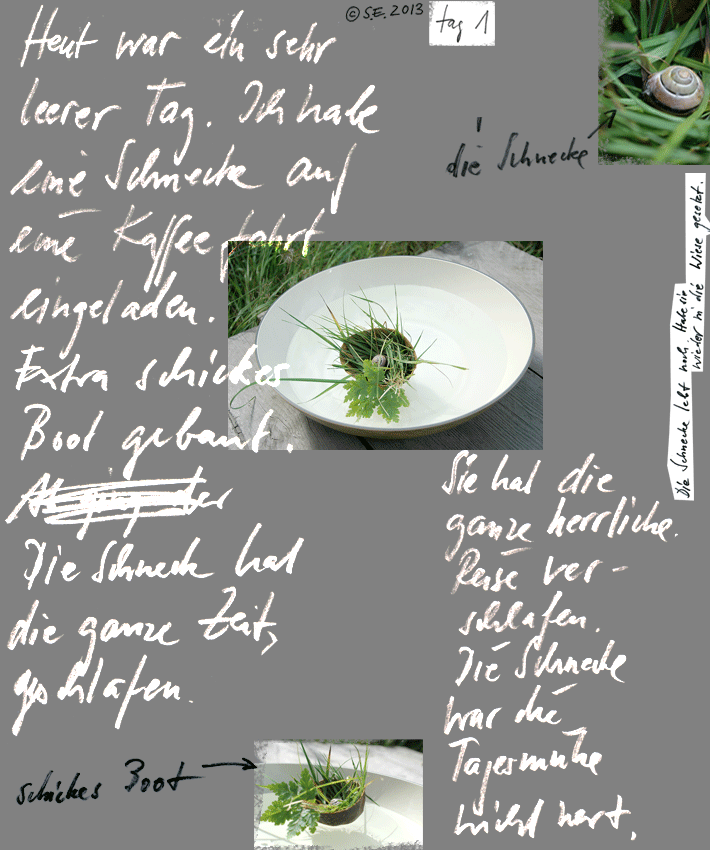 © S.E. 2013
tag 1
Heut war ein sehr
leerer Tag. Ich habe
eine Schnecke auf
eine Kaffeefahrt
eingeladen.
Extra schickes
Boot gebaut.
Die Schnecke hat
die ganze Zeit,
geschlafen.
die Schnecke
Die Schnecke lebt noch. Habe sie
wieder in die Wiese gesetzt.
Sie hat die
ganze herrliche
Reise ver-
schlafen.
Die Schnecke
war die
Tagesmühe
nicht wert.
schickes Boot